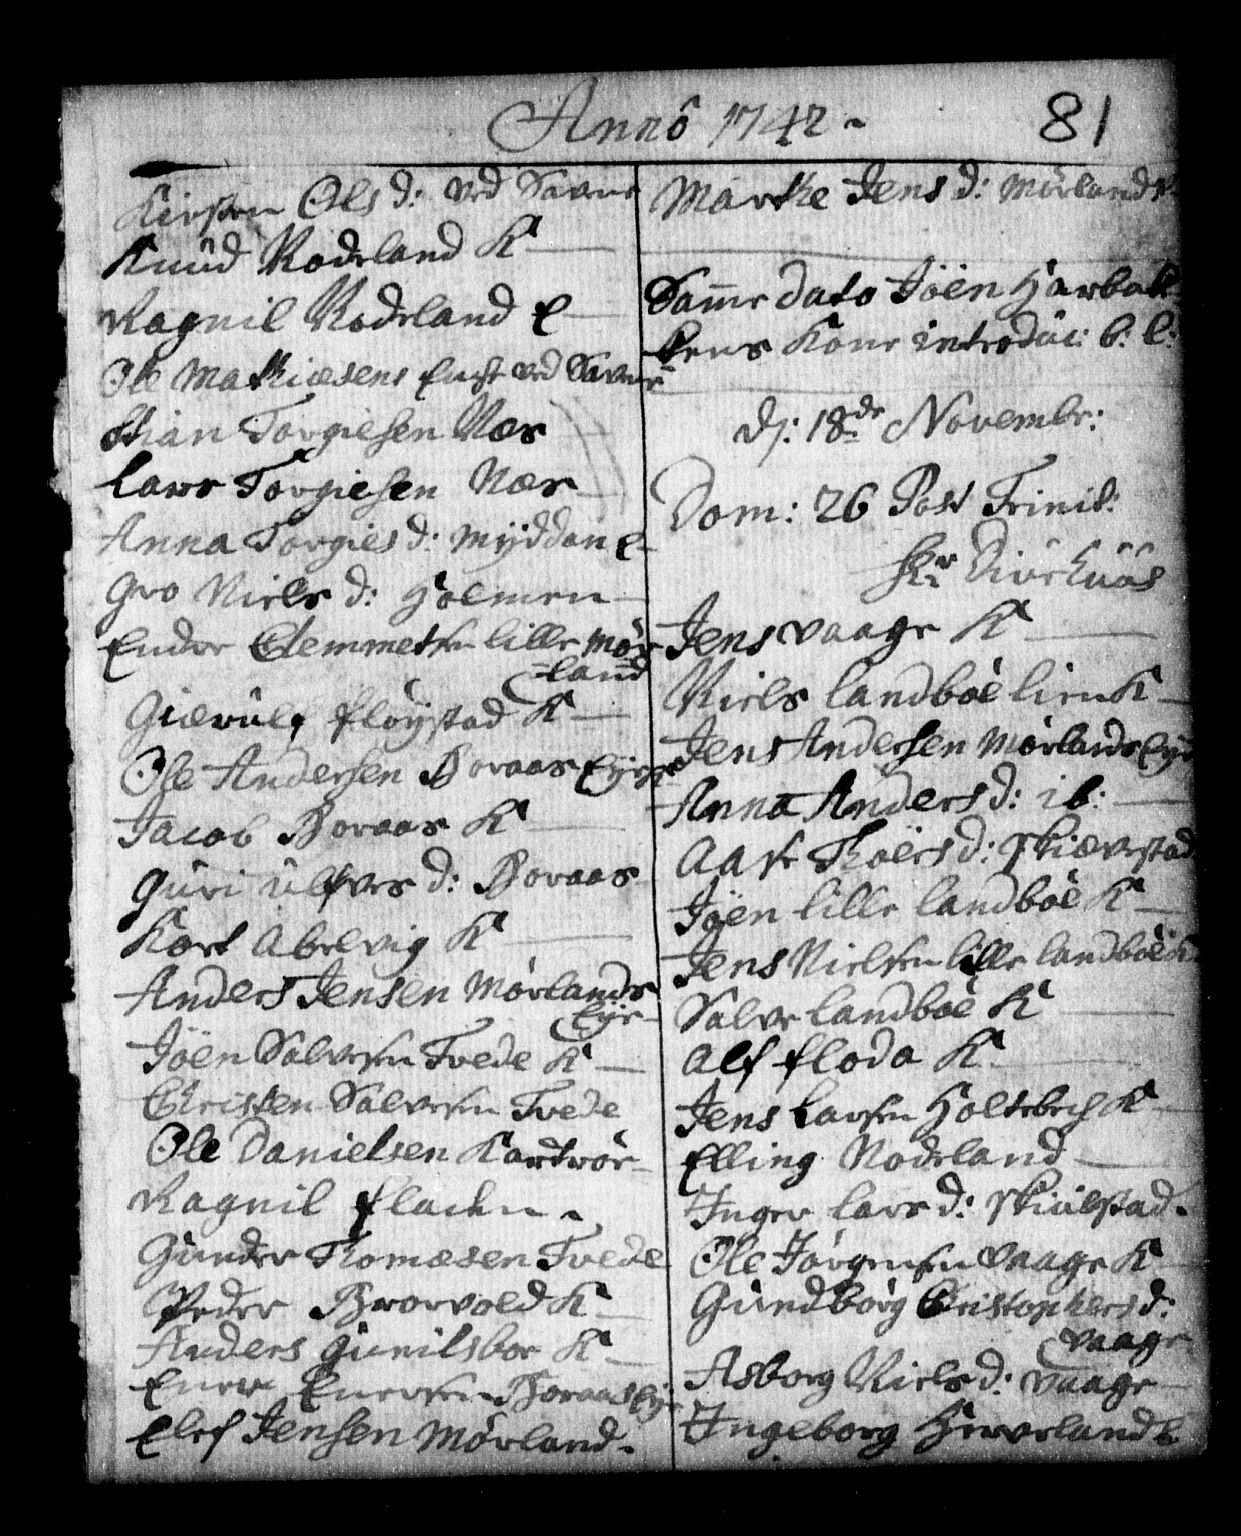 Anno 1742
81
Kirsten Ols d: ved Savne
Knud Rodeland K
Ragnil Rodeland E
Ole Mathiæsens Enche ved Savne
Stian Torgiesen Næs
Lars Torgiesen Næs
Anna Torgies d: Mÿddan E
Gro Niels d: Holmen
Ender Clemmetsen lille Mør
=land
Giærulf fløÿstad K
Ole Andersen Boraas Eÿe
Jacob Boraas K
Guri Ulfves d: Boraas
Kort Abelvig K
Anders Jensen Mørlands
Eÿe
Jöen Salvesen Tvede K
Christen Salvesen Tvede
Ole Danielsen
Ragnil flachen
Gunder Thomæsen Tvede
Peder Brorvold K
Anders Gunilsboe K
Ener Enersen Boraas Eÿe
Elef Jensen Mørland
Marthe Jens d: Mørland
Samme dato Jöen Harbak
kens Kone introduc: b: l:
dj: 18de Novembr:
Dom: 26 Post Trinit:
Hr Divehuus
Jens Vaage K
Niels Landböe lien K
Jens Andersen Mørlands Eÿe
Anna Anders d: ib:
Aase Thoers d: Skiævestad
Jöen lille Landböe K
Jens Nielsen lille Landböe K
Salve Landböe K
Alf floda K
Jens Larsen Holtebech K
Elling Rodeland
Inger Lars d: Skiulstad
Ole Jörgensen Vaage K
Gundborg Christophers d:
Vaage
Asborg Niels d: Vaage
Ingeborg Herverland E